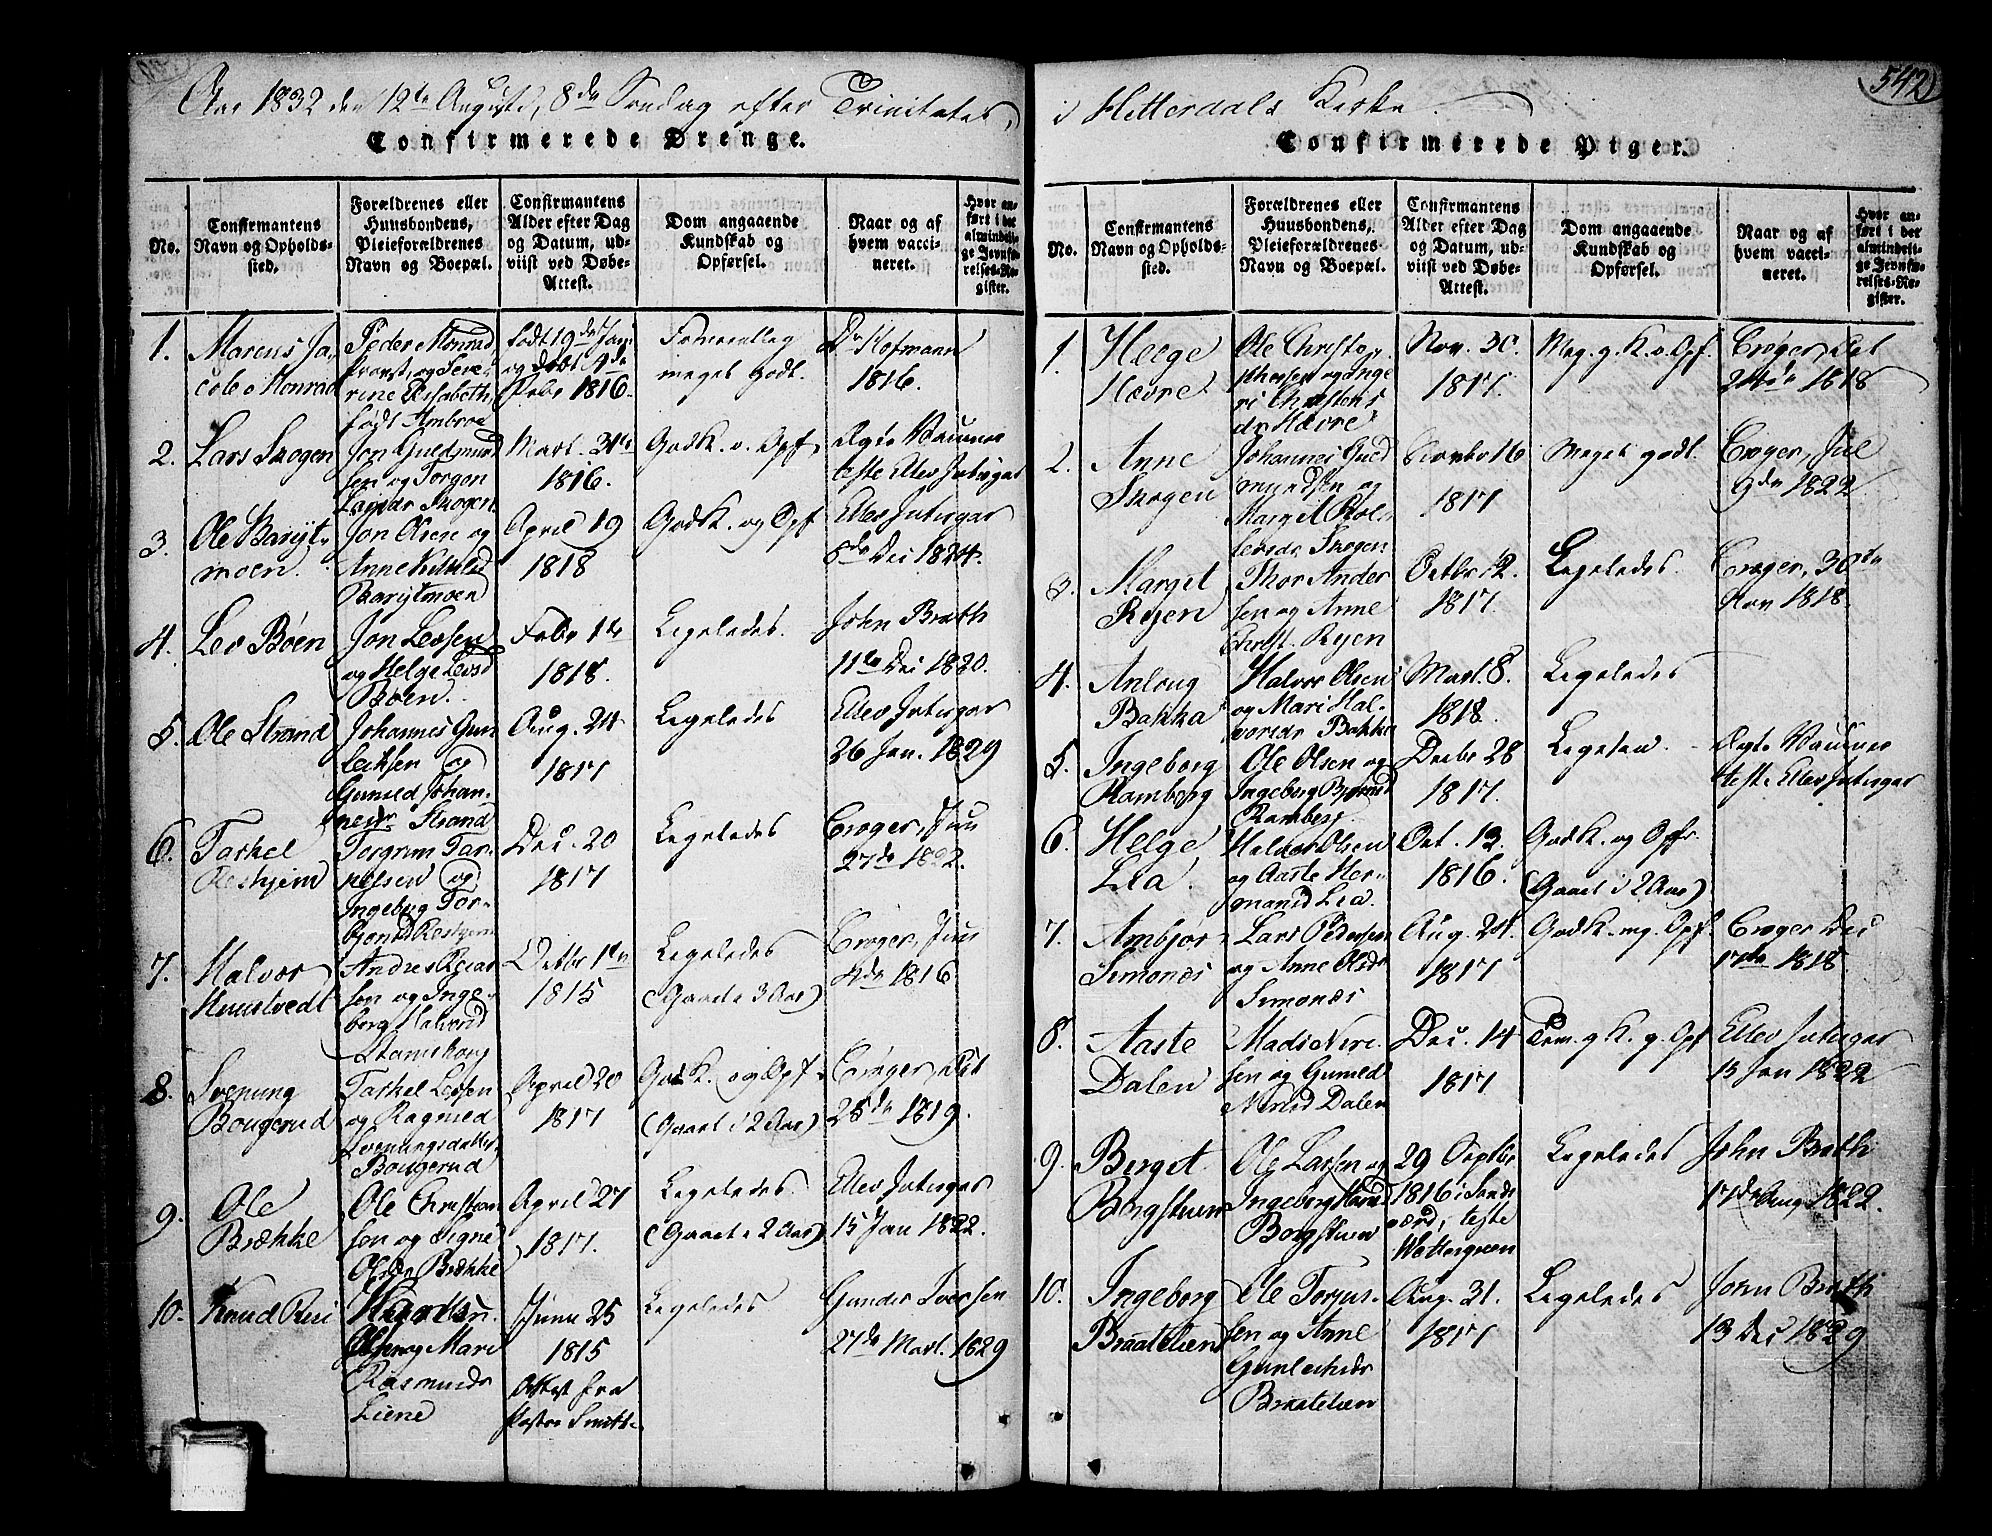 Aar 1832 den 12te August, 8de Søndag efter Trinitatis,
Confirmerede Drenge.
No.
Confirmantens Navn og Opholdssted.
Forældrenes eller Huusbondens, Pleieforældrenes Navn og Boepæl.
Confirmantens Alder efter Dag og Datum, udviist ved Døbe-Attest.
Dom angaaende Kundskab og Opførsel.
Naar og af hvem vaccineret.
Hvor anført i det almindelige Jevnførelses-Register.
1.
Marcus Ja-
cob Monrad
Peder Monrad
Provst, og Seve-
rine Elisabeth,
født Ambroe
født 19de Jan
og døbt 4de
Febr 1816.
meget godt.
Dr Hofmann
1816.
2.
Lars Skogen
Jon Guldmund
sen og Torgon
Larsdr Skogen
Mart. 31te
1816.
God K. o. Opf.
teste Ellev Intiegar
3.
Ole Barijt-
moen.
Jon Olsen og
Anne
Barijtmoen
April 19
1818
God K. og Opf
Ellev Intiegar
8de Dei 1824.
4.
Lev Bøen
Jon Levsen
og Helge Levsd
Bøen.
Febr 1te
1818.
Ligeledes.
John Bråth
11te Dei 1820.
5.
Ole Strand
Johannes Gun
leiksen og
Gunild Johan-
nesdr Strand
Aug. 24
1817
Ligeledes
Ellev Intiegar
26 Jan. 1829
6.
Tarkel
Reshjem
Torgrim Tar-
kelsen og
Ingeborg Tor-
bjønsd Reshjem
Dec. 20
1817
Ligeledes
Crøger, Juni
27de 1822.
7.
Halvor
Knustvedt
Andres Reiar
sen og Inge-
borg Halvorsd
Octbr 1te
1815
Ligeledes
(Gaaet i 3 Aar)
Crøger, Juni
4de 1816
8.
Svenung
Bougerud
Tarkel Levsen
og Ragnild
Svenungsdatter
Bougerud
April 20
1817
God K. og Opf.
(Gaaet i 2 Aar)
Crøger, Oct
25de 1819.
9.
Ole
Brække
Ole Christian
sen og Signe
Olsdr Brække
April 27
1817.
Ligeledes.
(Gaaet i 2 Aar)
Ellev Intiegar
15 Jan 1822.
10.
Knud Resi
Olsen og Mari
Rasmusdr
Liene
Juni 25
1815
Attest fra
Pastor Smitt.
Ligeledes
Gunder Iversen
27de Mart. 1829
542
i Hitterdals Kirke.
Confirmerede Piger.
No.
Confirmantens Navn og Opholdssted.
Forældrenes eller Huusbondens, Pleieforældrenes Navn og Boepæl.
Confirmantens Alder efter Dag og Datum, udviist ved Døbe-Attest.
Dom angaaende Kundskab og Opførsel.
Naar og af hvem vaccineret.
Hvor anført i det almindelige Jevnførelses-Register.
1.
Helge
Hævre
Ole Christo-
phersen og Inge
ri Christens
dr Hævre
Nov. 30.
1817.
Meg. g. K. o. Opf.
Crøger, Oct
24de 1818
2.
Anne
Skogen
Johannes Guld
mundsen og
Margit Hol-
Skogen
16
1817
Meget godt.
Crøger, Jul
9de 1822
3.
Marget
Ryen
Thor Ander
sen og Anne
Christ. Ryen
Octbr 12.
1817.
Ligeledes.
Crøger, 30te
Nov 1818.
4.
Anlaug
Bakka
Halvor Olsen
og Mari Hal-
vorsdr Bakka
Mart. 8.
1818.
Ligeledes
5.
Ingeborg
Ramberg
Ole Olsen og
Ingeborg Bjørnsd
Ramberg.
Decbr 28
1817.
teste Ellev Intiegar
6.
Helge
Lia.
Halvor Olsen
og Aaste Her-
mansd Lia.
Oct. 13.
1816.
God K. og Opfr.
(Gaaet i 2 Aar)
7.
Ambjør
Simonæs
Lars Pedersen
og Anne Olsdr
Simonæs
Aug. 24.
1817
God K. mg. Opf.
Crøger Dec
17de 1818
8.
Aaste
Dalen
Mads Niri-
sen og Gunild
Nirisd Dalen
Dec. 14
1817
Tem. g K. g. Opf
Ellev Intiegar
15 Jan 1822
9.
Berget
Borgstuen
Ole Larsen og
Ingeborg
Borgstuen
29 Septbr
1816 i Sande
værd, teste
Wettergreen
Ligeledes
John Bråth
17de Aug 1822.
10.
Ingeborg
Braatelien
Ole Torjus-
sen og Anne
Gunleiksdr
Braatelien
Aug. 31.
1817
Ligeledes
John Bråth
13 Dei 1829